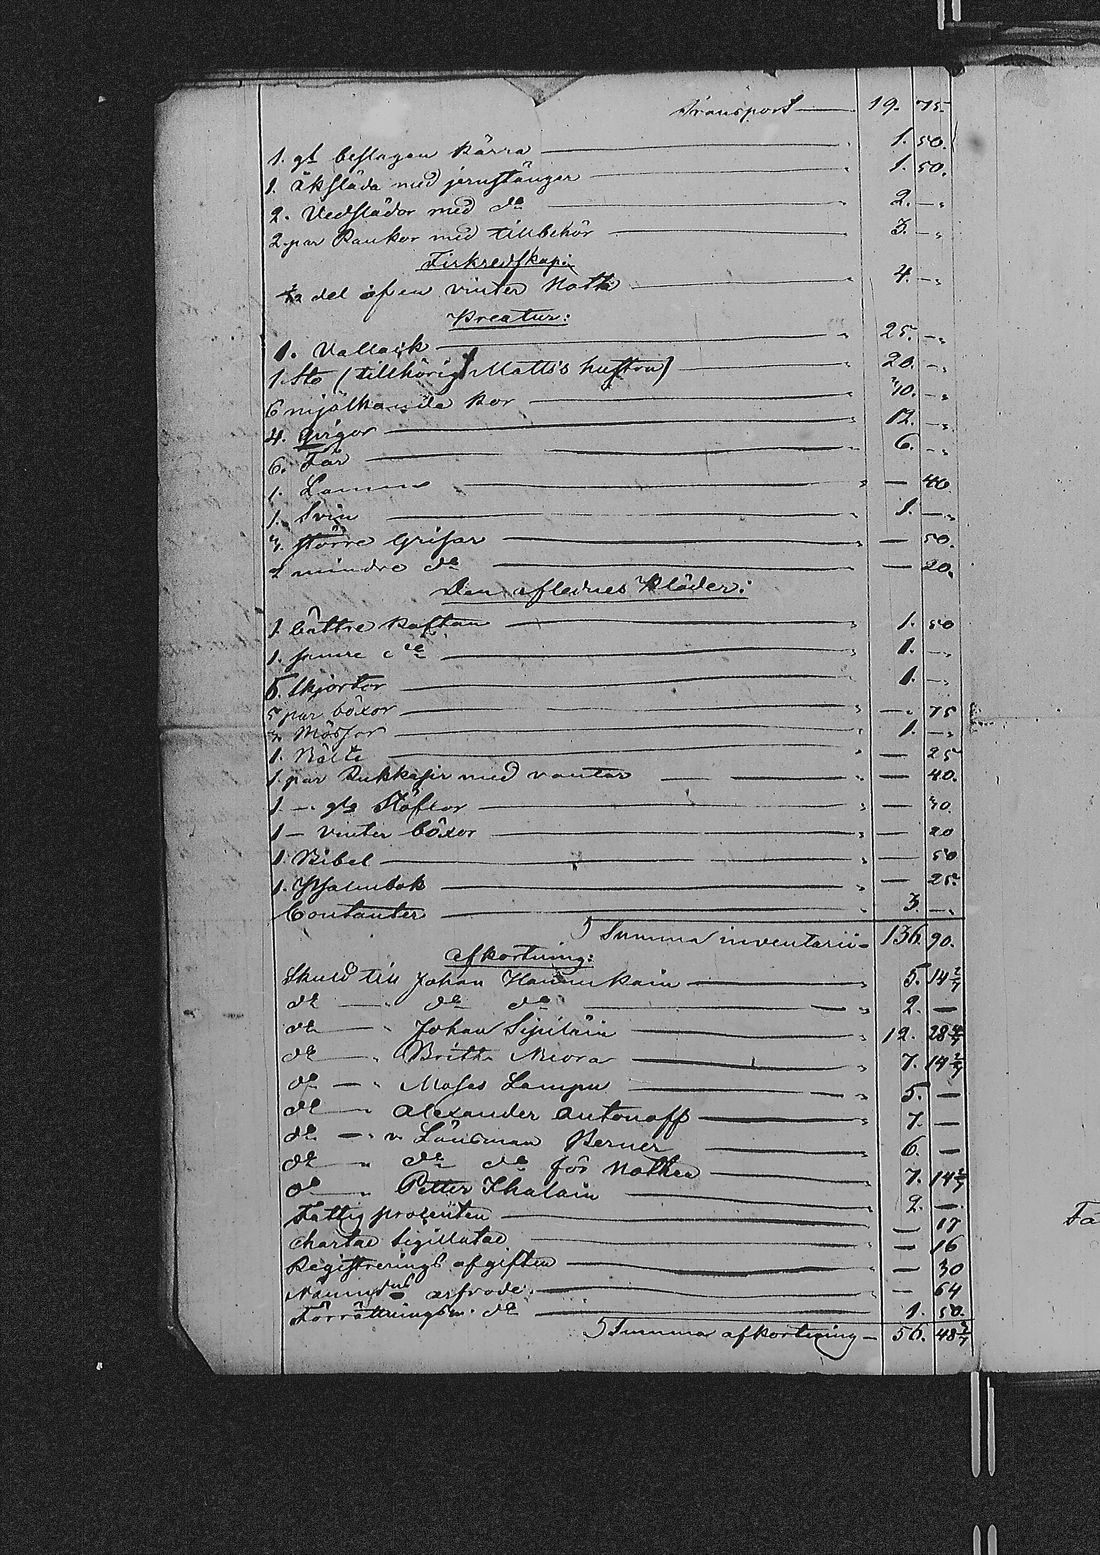 Transport — 19. 75.
1. gl. beslagen Kärra — 1. 50.
1. Åksläda med jernstänger — 1. 50.
2. Vedslädor med do — 2. —
2. par Rankor med tillbehör — 3. —
Fiskredskapen
del af en vinter Noth — 4. —
Kreatur:
1. Vallack — 25. —
1. Sto (tillhörig Matts's hustru) — 20. —
6 mjölkande Kor — 30. —
4. Qvigor — 12. —
6. Får — 6. —
1. Lamm — 40.
1. Svin — 1. —
3. större Grisar — 50.
2 mindre do — 20.
Den aflednes Kläder:
1. bättre Kaftan — 1. 50
1. sämre do — 1. —
5. Skjortor — 1. —
5 par böxor — 75
3. Mössor — 1. —
1. Bälte — 25
1. par Rukkasir med vantar — 40.
1 — gla Stöflor — 30.
1 — vinter böxor — 20
1. Bibel — 50
1. Psalmbok — 25.
Contanter — 3. —
Summa inventarii — 136. 90.
Afkortning:
Skuld till Johan Hannukain — 5. 14 2/7
do — do do — 2. —
do — Johan Sipiläin — 12. 28 4/7
do — Britta Neora — 7. 14 2/7
do — Moses Lampu — 5. —
do — Alexander Antonoff — 7. —
do — Länsman Berner — 6. —
do do do för Nothen — 7. 14 2/7
do — Petter Ihalain — 2. —
Fattig procenten — 17
Chartae Sigillatae — 16
Registrerings afgiften — 30
arfvode — 64
Förrättningsm. do — 1. 50.
Summa afkortning — 56. 48 3/7